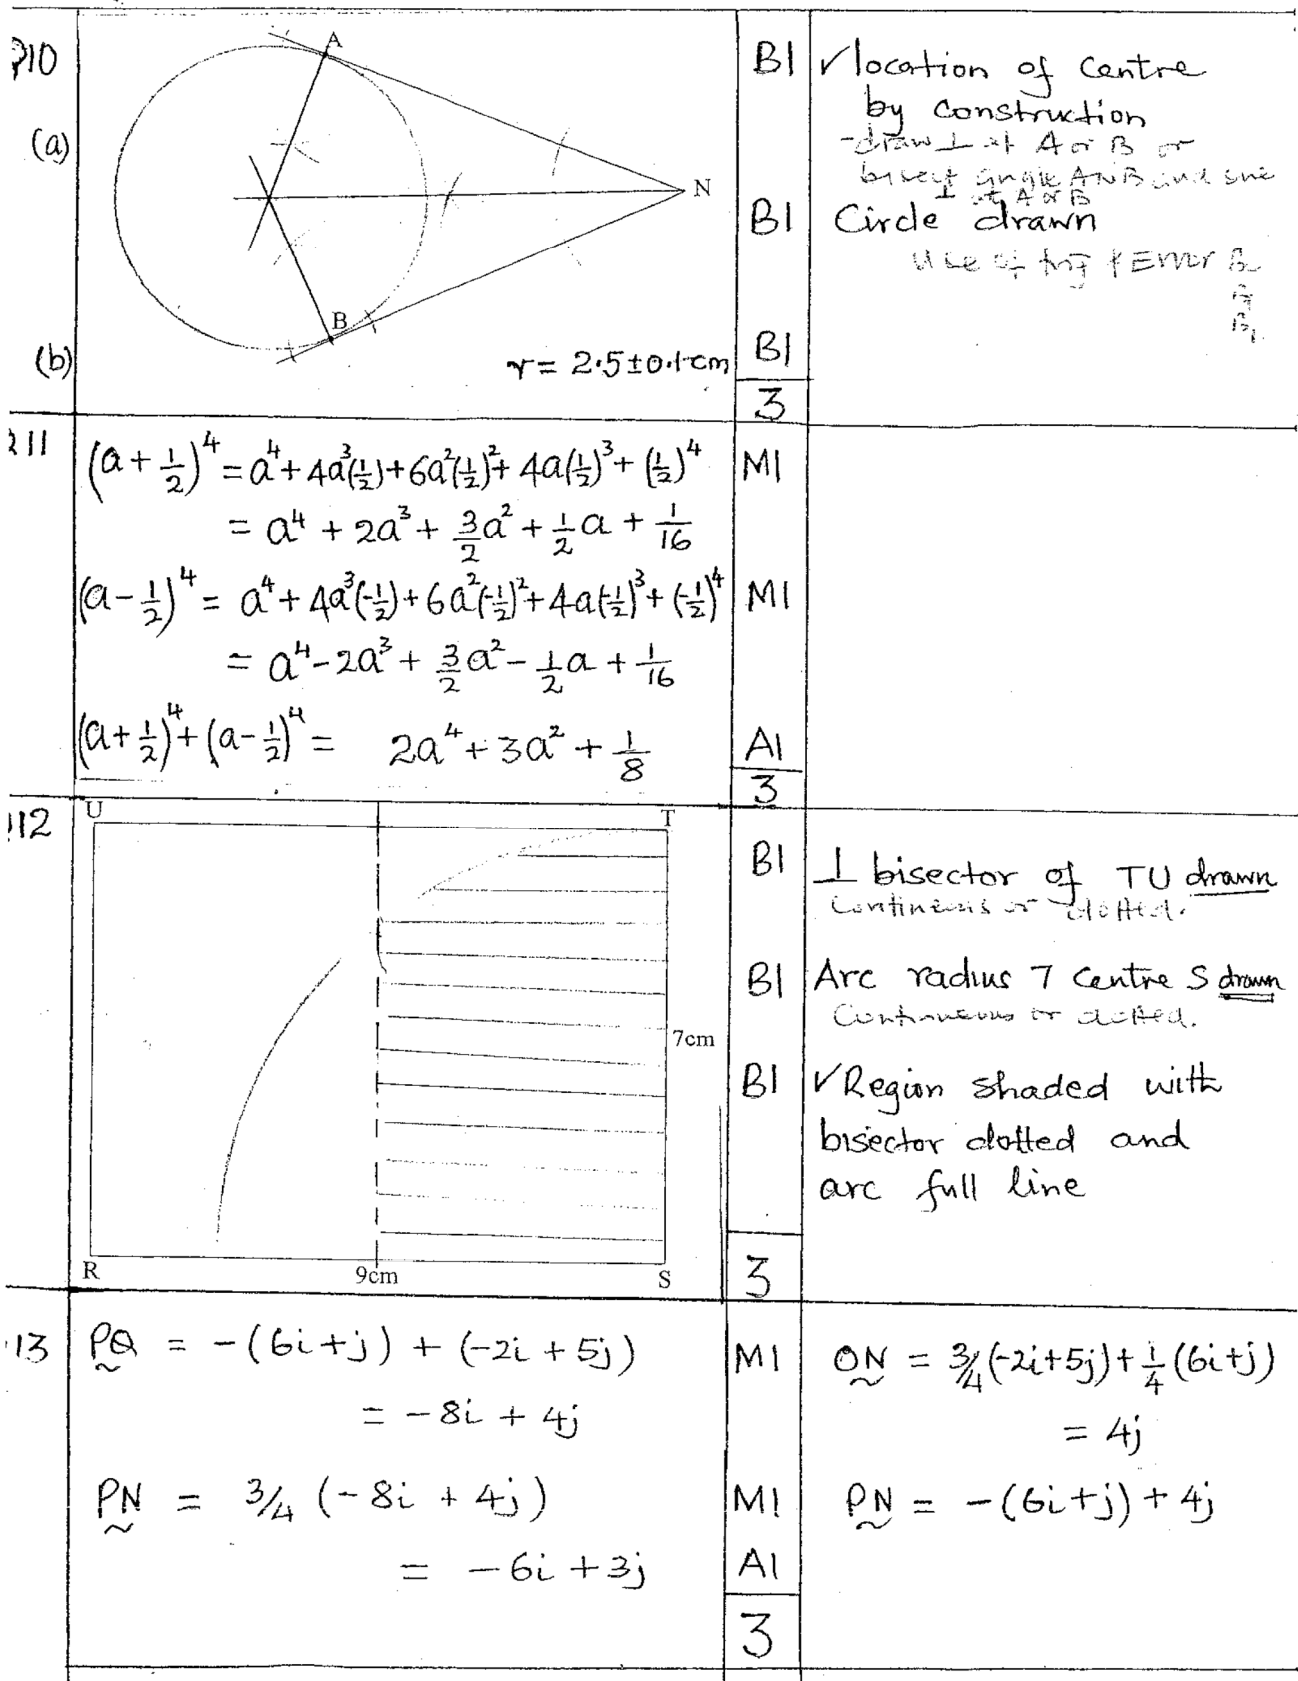 10
(a)
A
N
B
(b)
r = 2.5±0.1cm
B1
B1
B1
3
✓location of centre
by construction
-draw ⊥ at A or B or
bisect angle ANB and one
⊥ at A or B
Circle drawn
Use of & Error B
B
11
(a + 1/2)^4 = a^4 + 4a^3(1/2) + 6a^2(1/2)^2 + 4a(1/2)^3 + (1/2)^4
M1
= a^4 + 2a^3 + 3/2 a^2 + 1/2 a + 1/16
(a - 1/2)^4 = a^4 + 4a^3(-1/2) + 6a^2(-1/2)^2 + 4a(-1/2)^3 + (-1/2)^4
M1
= a^4 - 2a^3 + 3/2 a^2 - 1/2 a + 1/16
(a + 1/2)^4 + (a - 1/2)^4 = 2a^4 + 3a^2 + 1/8
A1
3
12
U
T
7cm
R
9cm
S
B1
⊥ bisector of TU drawn
Continuous or dotted.
B1
Arc radius 7 Centre S drawn
Continuous or dotted.
B1
✓Region shaded with
bisector dotted and
arc full line
3
13
PQ = -(6i+j) + (-2i + 5j)
M1
ON = 3/4(-2i+5j) + 1/4(6i+j)
= -8i + 4j
= 4j
PN = 3/4 (-8i + 4j)
M1
PN = -(6i+j) + 4j
= -6i + 3j
A1
3